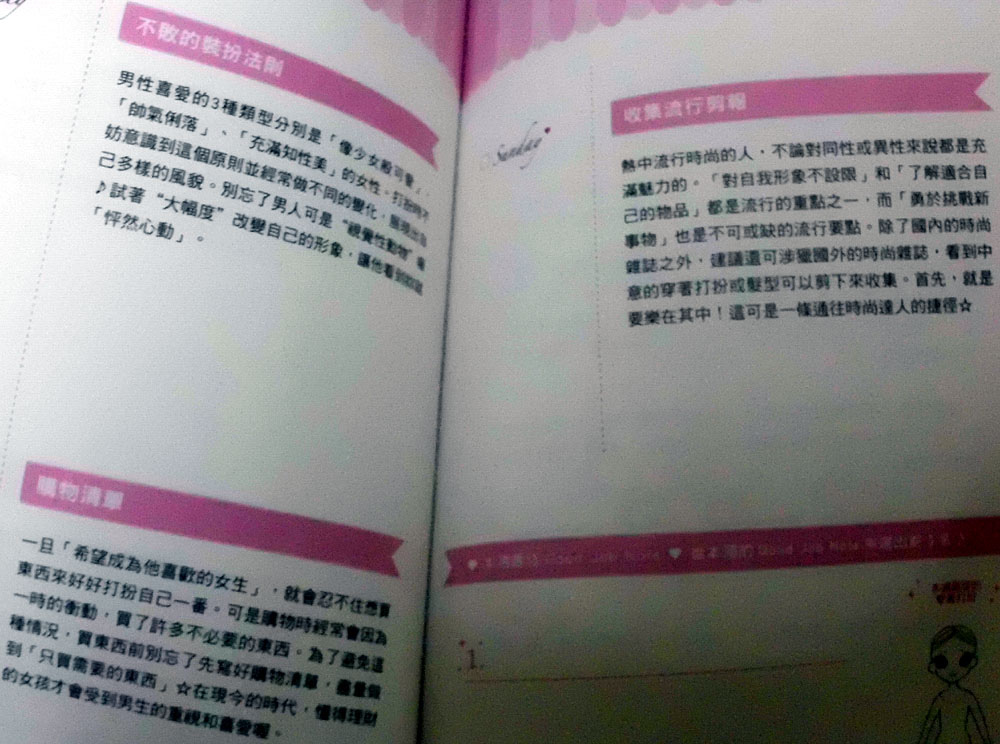 不敗的裝扮法則
男性喜愛的3種類型分別是「像少女般可愛」、
「帥氣俐落」、「充滿知性美」的女性。打扮時不
妨意識到這個原則並經常做不同的變化，展現出自
己多樣的風貌。別忘了男人可是“視覺性動物”喔
♪試著“大幅度”改變自己的形象，讓他看到
「怦然心動」。
購物清單
一旦「希望成為他喜歡的女生」，就會忍不住想買
東西來好好打扮自己一番。可是購物時經常會因為
一時的衝動，買了許多不必要的東西。為了避免這
種情況，買東西前別忘了先寫好購物清單，盡量做
到「只買需要的東西」☆在現今的時代，懂得理財
的女孩才會受到男生的重視和喜愛喔。
Sunday
收集流行剪報
熱中流行時尚的人，不論對同性或異性來說都是充
滿魅力的。「對自我形象不設限」和「了解適合自
己的物品」都是流行的重點之一，而「勇於挑戰新
事物」也是不可或缺的流行要點。除了國內的時尚
雜誌之外，建議還可涉獵國外的時尚雜誌，看到中
意的穿著打扮或髮型可以剪下來收集。首先，就是
要樂在其中！這可是一條通往時尚達人的捷徑☆
Good Job Note ♥ 從本週的 Good Job Note 中選出
1.